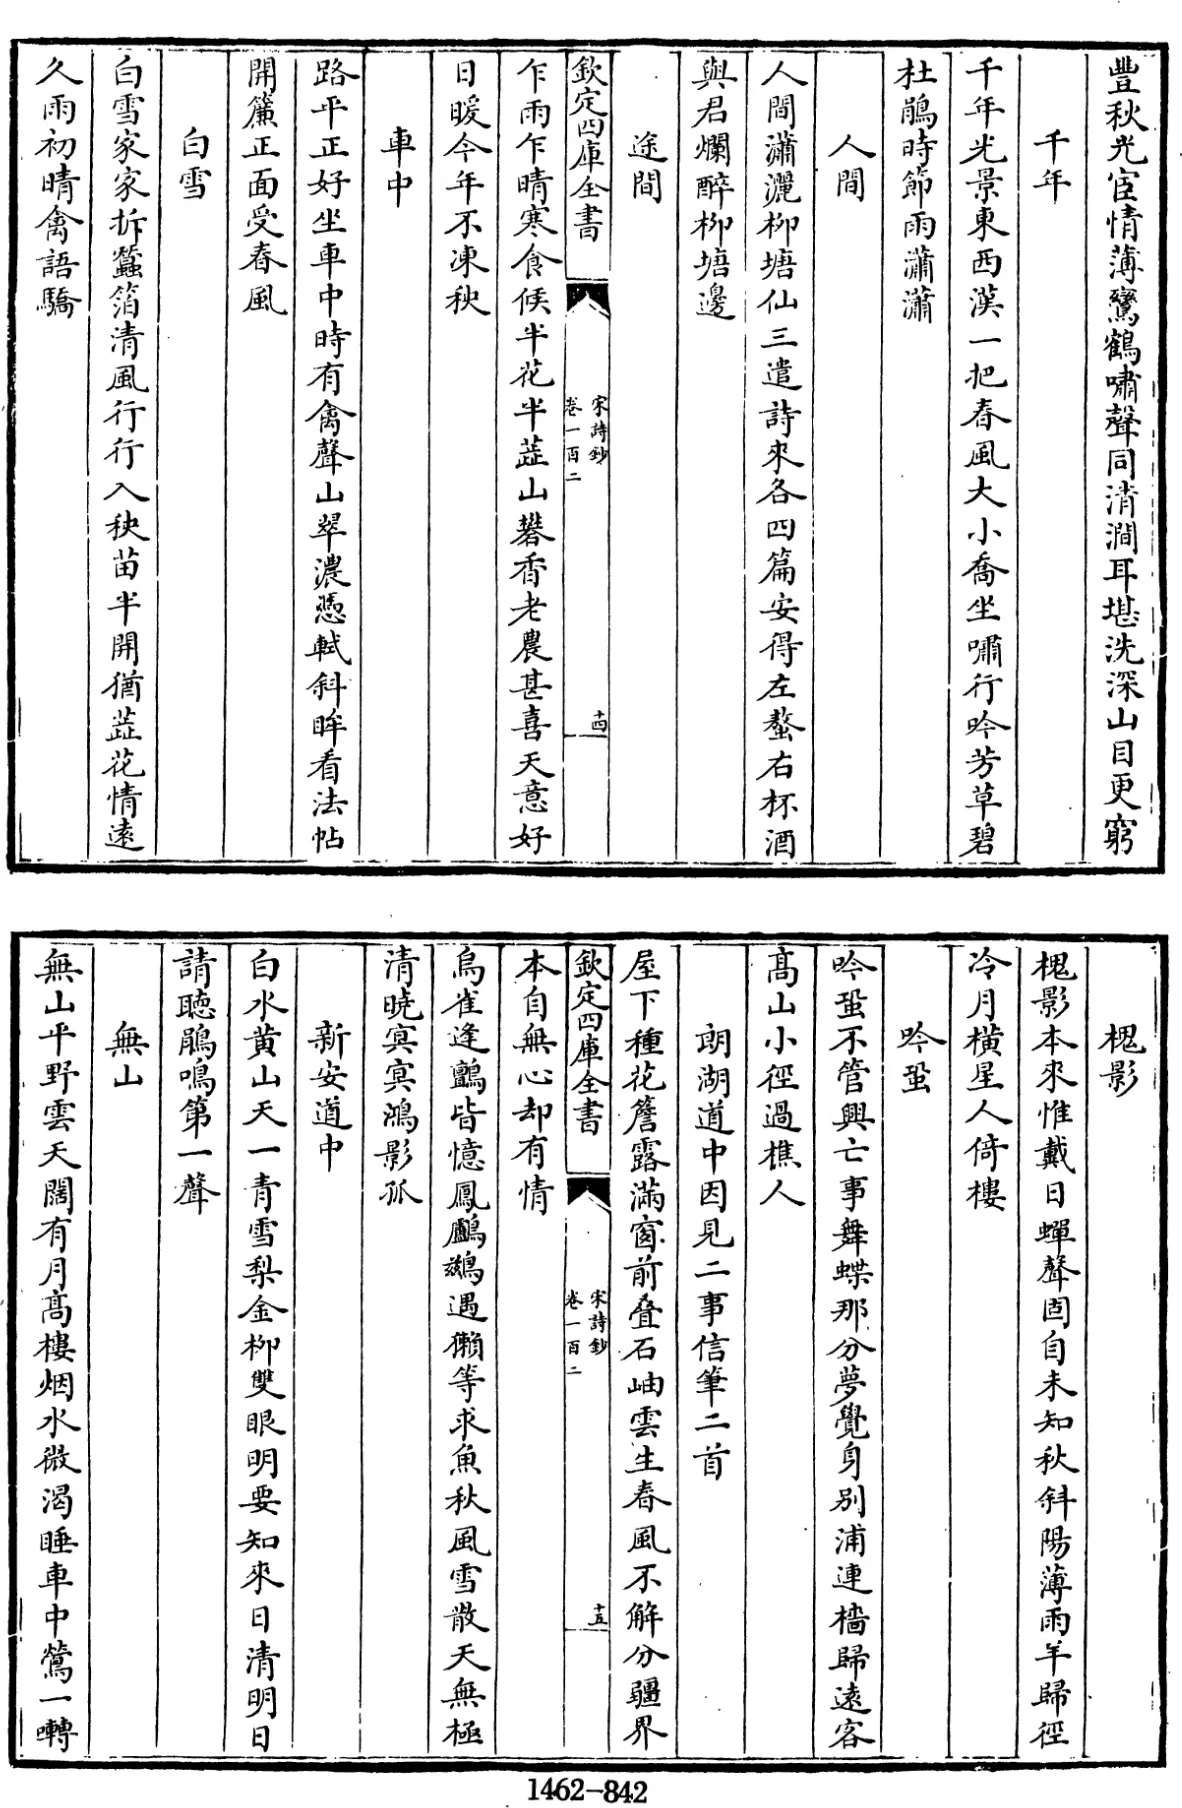 豐秋光宦情薄鸞鶴嘯聲同清澗耳堪洗深山目更窮
千年
千年光景東西漢一把春風大小喬坐嘯行吟芳草碧
杜鵑時節雨瀟瀟
人間
人間瀟灑柳塘仙三遣詩來各四篇安得左螯右杯酒
與君爛醉柳塘邊
途間
欽定四庫全書
宋詩鈔
卷一百二
十四
乍雨乍晴寒食候半花半蕋山礬香老農甚喜天意好
日暖今年不凍秧
車中
路平正好坐車中時有禽聲山翠濃憑軾斜眸看法帖
開簾正面受春風
白雪
白雪家家拆蠶箔清風行行入秧苗半開猶蕋花情遠
久雨初晴禽語驕
槐影
槐影本來惟戴日蟬聲固自未知秋斜陽薄雨羊歸徑
冷月橫星人倚樓
吟蛩
吟蛩不管興亡事舞蝶那分夢覺身別浦連檣歸遠客
髙山小徑過樵人
朗湖道中因見二事信筆二首
屋下種花簷露滿窗前疊石岫雲生春風不解分疆界
欽定四庫全書
宋詩鈔
卷一百二
十五
本自無心却有情
烏雀逢鸇皆憶鳳鸕鷀遇獺等求魚秋風雪散天無極
清曉冥冥鴻影孤
新安道中
白水黄山天一青雪梨金柳雙眼明要知來日清明日
請聽鵑鳴第一聲
無山
無山平野雲天闊有月髙樓烟水微渴睡車中鶯一囀
1462-842